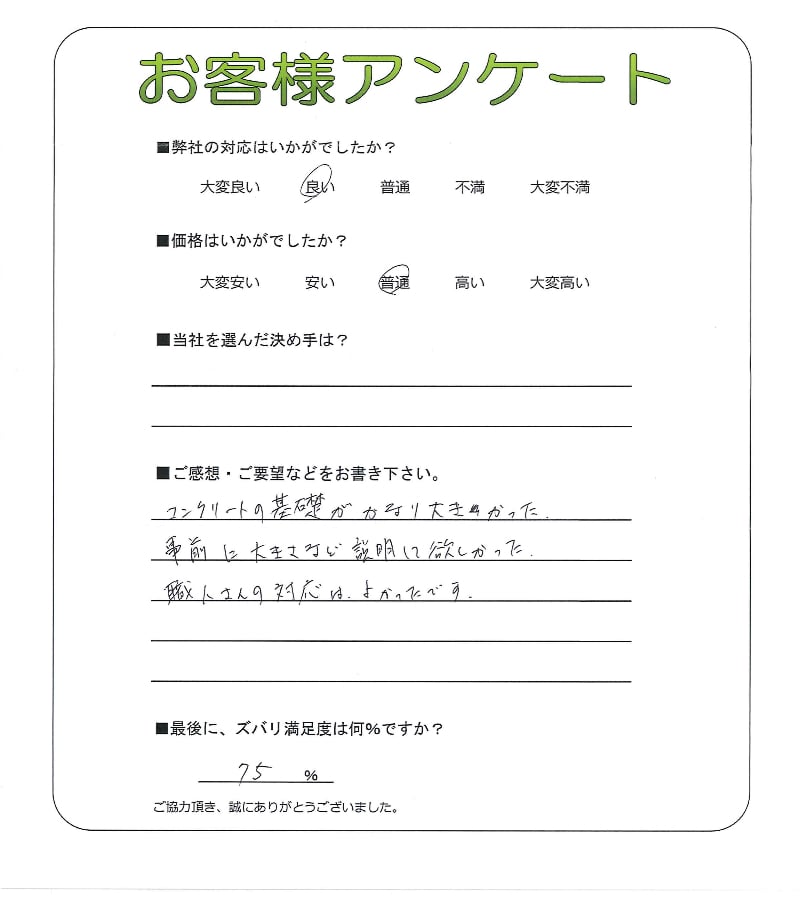 お客様アンケート
■弊社の対応はいかがでしたか？
大変良い 良い 普通 不満 大変不満
■価格はいかがでしたか？
大変安い 安い 普通 高い 大変高い
■当社を選んだ決め手は？
■ご感想・ご要望などをお書き下さい。
コンクリートの基礎がかなり大きかった.
事前に大きさなど説明して欲しかった.
職人さんの対応は、よかったです.
■最後に、ズバリ満足度は何%ですか？
75 %
ご協力頂き、誠にありがとうございました。